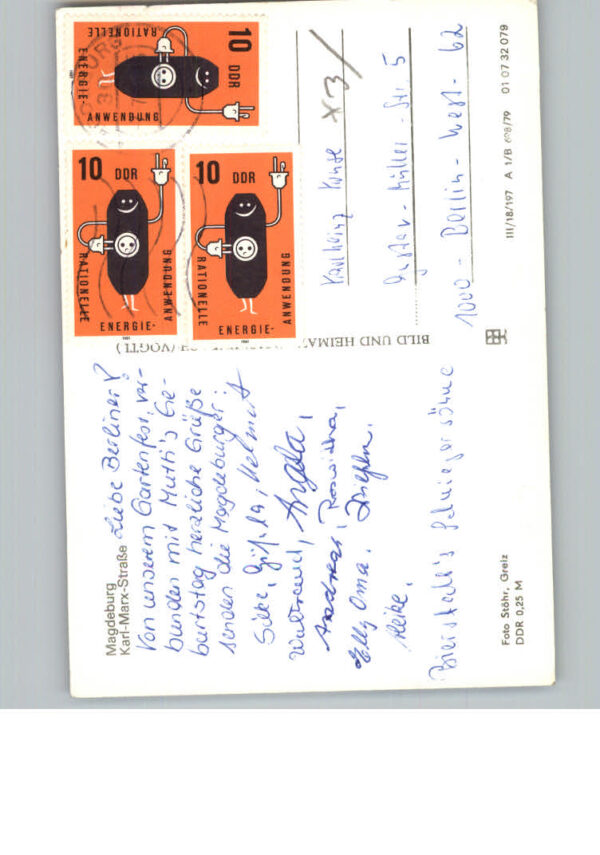 Magdeburg
Karl-Marx-Straße
Liebe Berliner!
Von unserem Gartenfest, ver-
bunden mit Mutti's Ge-
burtstag herzliche Grüße
senden die Magdeburger:
Silke, Gisela, Helmut
Waltraud, Angela,
Andreas, Roswitha,
Elly Oma.
Heike.
Bierstedt's Schwiegersöhne
Foto Stöhr, Greiz
DDR 0,25 M
BILD UND HEIMAT (VOGTL)
10 DDR
RATIONELLE
ENERGIE-
ANWENDUNG
10 DDR
RATIONELLE
ENERGIE-
ANWENDUNG
10 DDR
RATIONELLE
ENERGIE-
ANWENDUNG
Karlheinz Kunse
Gustav-Müller-Str. 5
1000-Berlin-West-62
III/18/197 A 1/B 698/79 01 07 32 079